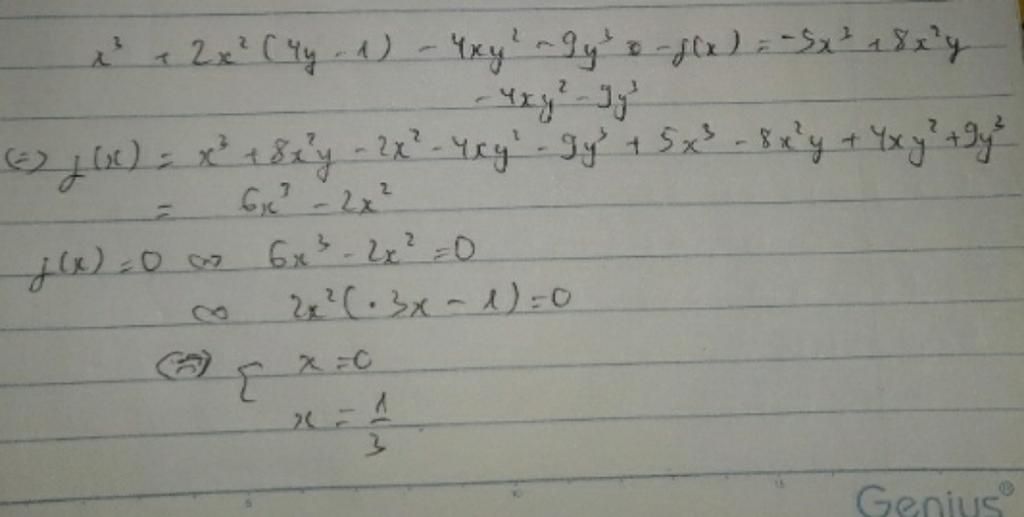 x³ + 2x² (4y - 1) - 4xy² - 9y³ - f(x) = -5x³ + 8x²y
- 4xy² - 9y³
(=) f(x) = x³ + 8x²y - 2x² - 4xy² - 9y³ + 5x³ - 8x²y + 4xy² + 9y³
= 6x³ - 2x²
f(x) = 0 ⇔ 6x³ - 2x² = 0
⇔ 2x² ( . 3x - 1 ) = 0
⇔ { x = 0
x = 1/3
5 10 15
Genius®